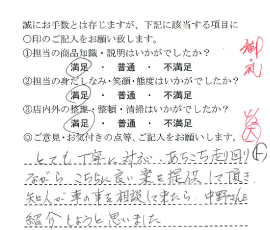 誠にお手数とは存じますが、下記に該当する項目に
〇印のご記入をお願い致します。
①担当の商品知識・説明はいかがでしたか？
満足 ・ 普通 ・ 不満足
②担当の身だしなみ・笑顔・態度はいかがでしたか？
満足 ・ 普通 ・ 不満足
③店内外の整理・整頓・清掃はいかがでしたか？
満足 ・ 普通 ・ 不満足
◎ご意見・お気付きの点等、ご記入をお願いします。
とても丁寧に対応い、あちこち走り回り
ながら こちらに良い案を提供して頂き
知人が車の事を相談して来たら 中野さんを
紹介しようと思いました
御礼